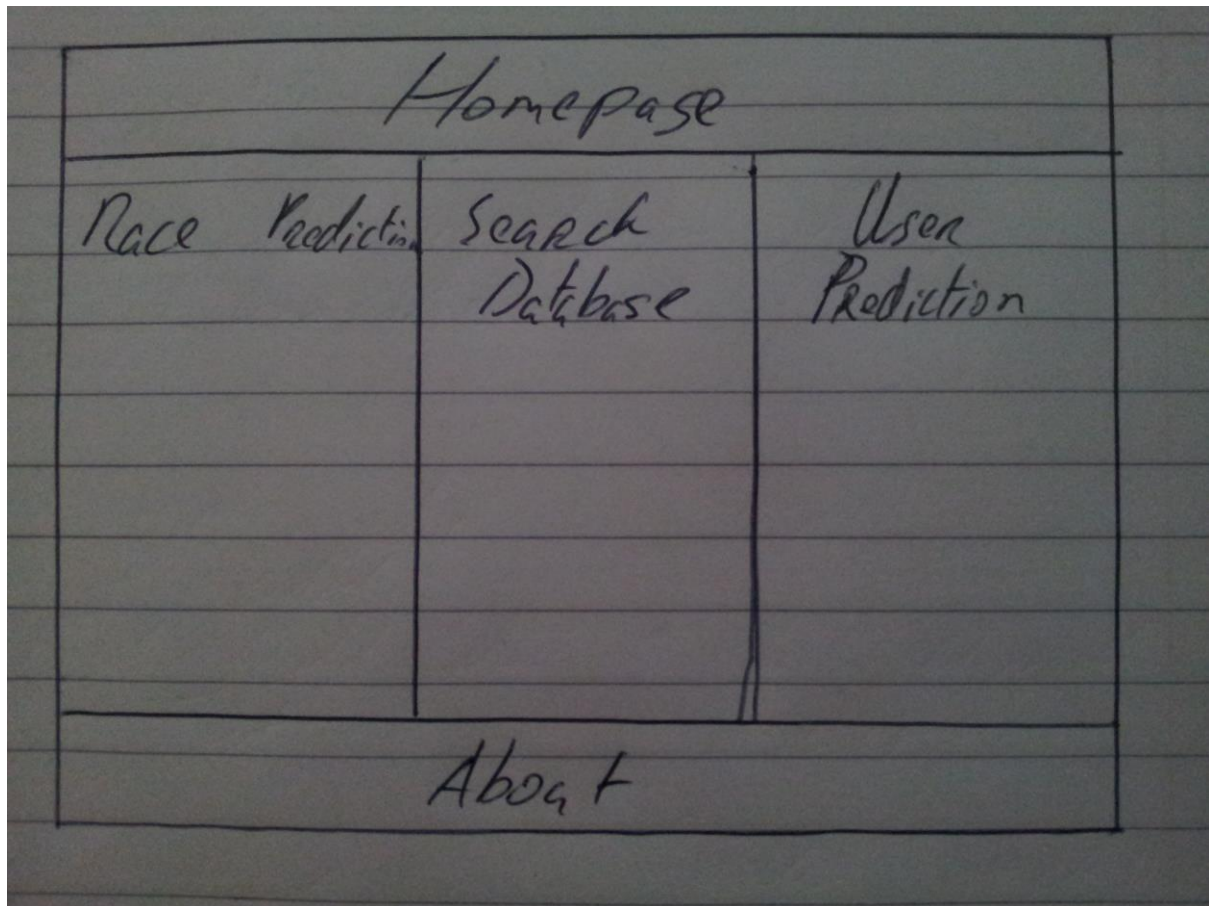 Homepage
Race Prediction
Search
Database
User
Prediction
About